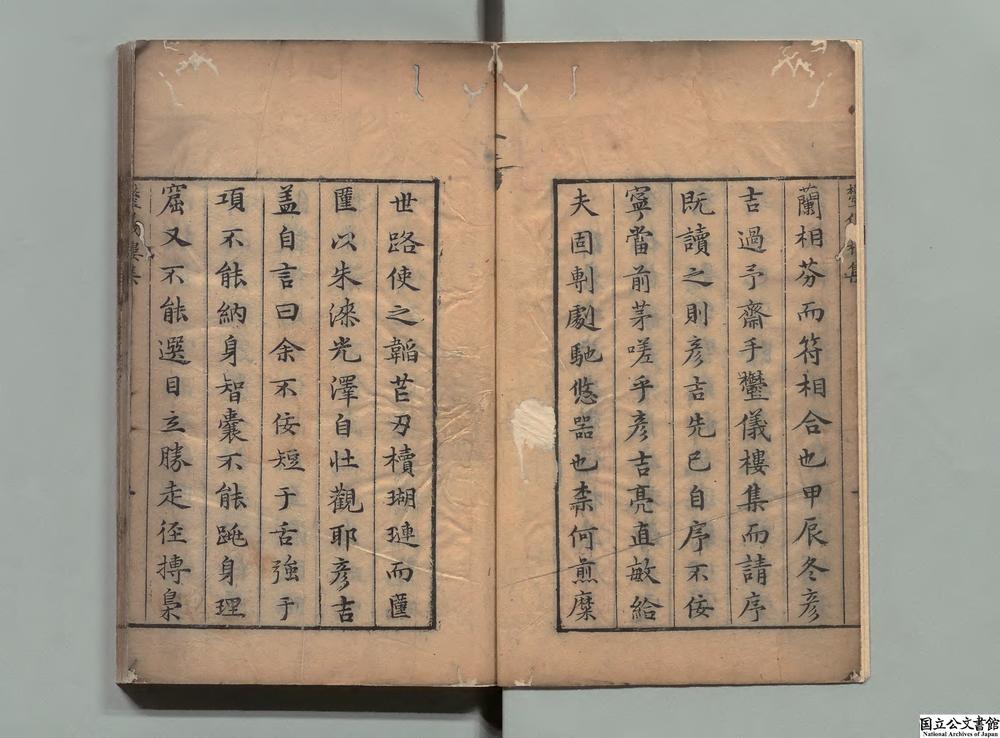 蘭相芬而符相合也甲辰冬彥
吉過予齋手鬱儀樓集而請序
既讀之則彥吉先已自序不佞
寧當前茅嗟乎彥吉亮直敏給
夫固剸劇馳悠器也柰何煎糜
世路使之韜芒刃櫝瑚璉而匵
匵以朱漆光澤自壯觀耶彥吉
盖自言曰余不佞短于舌強于
項不能納身智囊不能跳身理
窟又不能選目立勝走徑摶梟
国立公文書館
National Archives of Japan